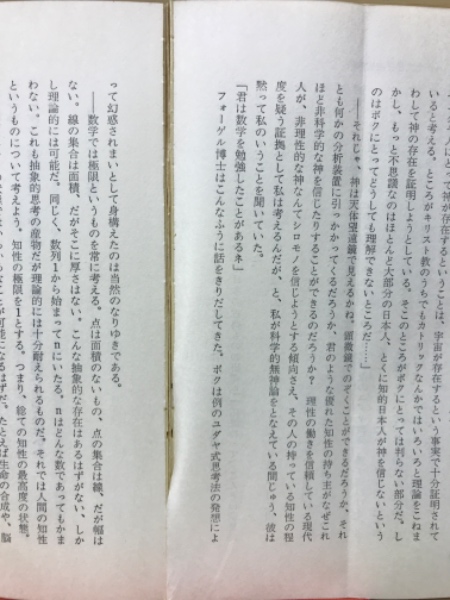 て神が存在するということは、宇宙が存在するという事実で十分証明されて
いると考える。ところがキリスト教のうちでもカトリックなんかではいろいろと理論をこねま
わして神の存在を証明しようとしている。そこのところがボクにとっては判らない部分だ。し
かし、もっと不思議なのはほとんど大部分の日本人、とくに知的日本人が神を信じないという
のはボクにとってどうしても理解できないところだ……」
――それじゃ、神は天体望遠鏡で見えるかね。顕微鏡でのぞくことができるだろうか、それ
とも何かの分析装置に引っかかってくるだろうか、君のような優れた知性の持ち主がなぜこれ
ほど非科学的な神を信じたりすることができるのだろうか? 理性の働きを信頼している現代
人が、非理性的な神なんてシロモノを信じようとする傾向さえ、その人の持っている知性の程
度を疑う証拠として私は考えるんだが、と、私が科学的無神論をとなえている間じゅう、彼は
黙って私のいうことを聞いていた。
「君は数学を勉強したことがあるネ」
フォーゲル博士はこんなふうに話をきりだしてきた。ボクは例のユダヤ式思考法の発想によ
って幻惑されまいとして身構えたのは当然のなりゆきである。
――数学では極限というものを常に考える。点は面積のないもの、点の集合は線、だが幅は
ない。線の集合は面積、だがそこに厚さはない。こんな抽象的な存在はあるはずがない、しか
し理論的には可能だ。同じく、数列1から始まってnにいたる。nはどんな数であってもかま
わない。これも抽象的思考の産物だが理論的には十分耐えられるものだ。それでは人間の知性
というものについて考えよう。知性の極限を1とする。つまり、総ての知性の最高度の状態。
可能になるはずだ。たとえば生命の合成や、脳